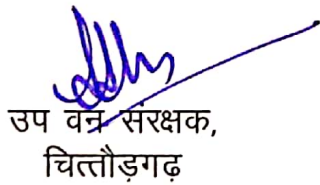 उप वन संरक्षक,
चित्तौड़गढ़